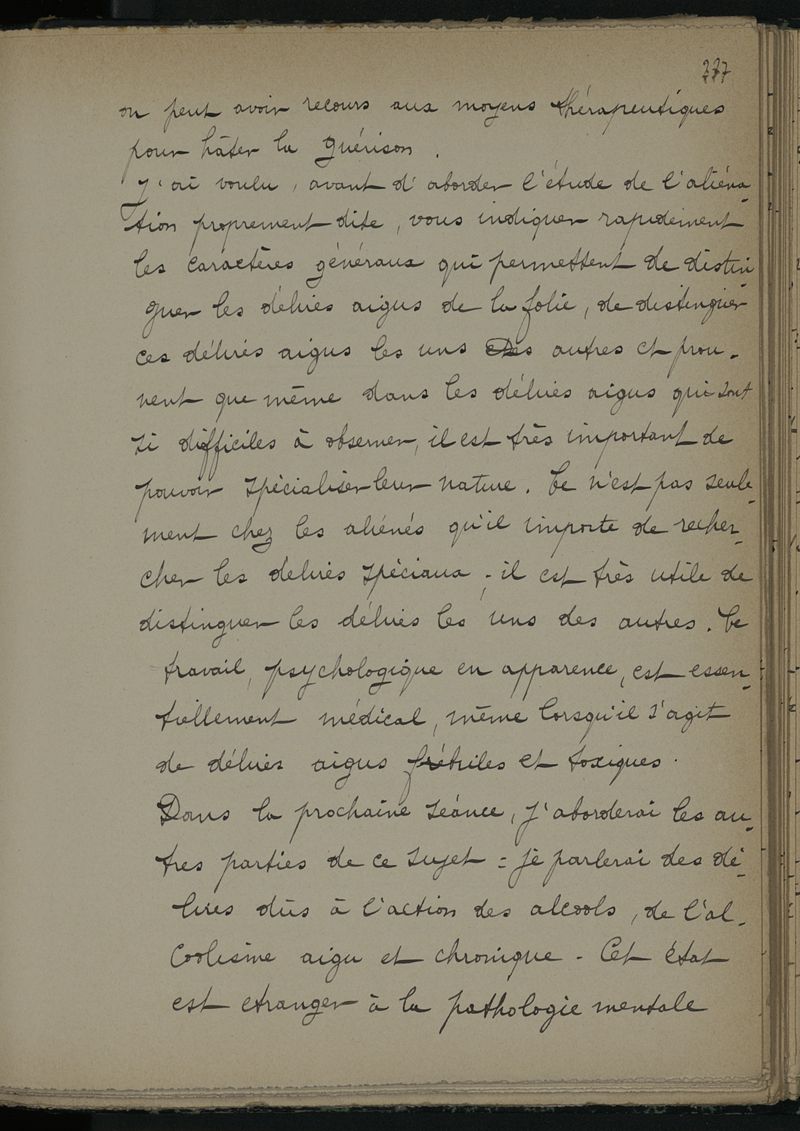 337
on peut avoir recours aux moyens thérapeutiques
pour hâter la guérison.
J'ai voulu, avant d'aborder l'étude de l'aliéna-
tion proprement dite, vous indiquer rapidement
les caractères généraux qui permettent de distin
guer les délires aigus de la folie, de distinguer
ces délires aigus les uns des autres et prou-
vent que même dans les délires aigus qui sont
si difficiles à observer, il est très important de
pouvoir spécialiser leur nature. Ce n'est pas seule-
ment chez les aliénés qu'il importe de recher-
cher les délires spéciaux ; il est très utile de
distinguer les délires les uns des autres. Ce
travail, psychologique en apparence, est essen-
tiellement médical, même lorsqu'il s'agit
de délires aigus fébriles et toxiques.
Dans la prochaine séance, j'aborderai les au-
tres parties de ce sujet = je parlerai des dé-
lires dûs à l'action des alcools, de l'al-
coolisme aigu et chronique - Cet état
est etranger à la pathologie mentale